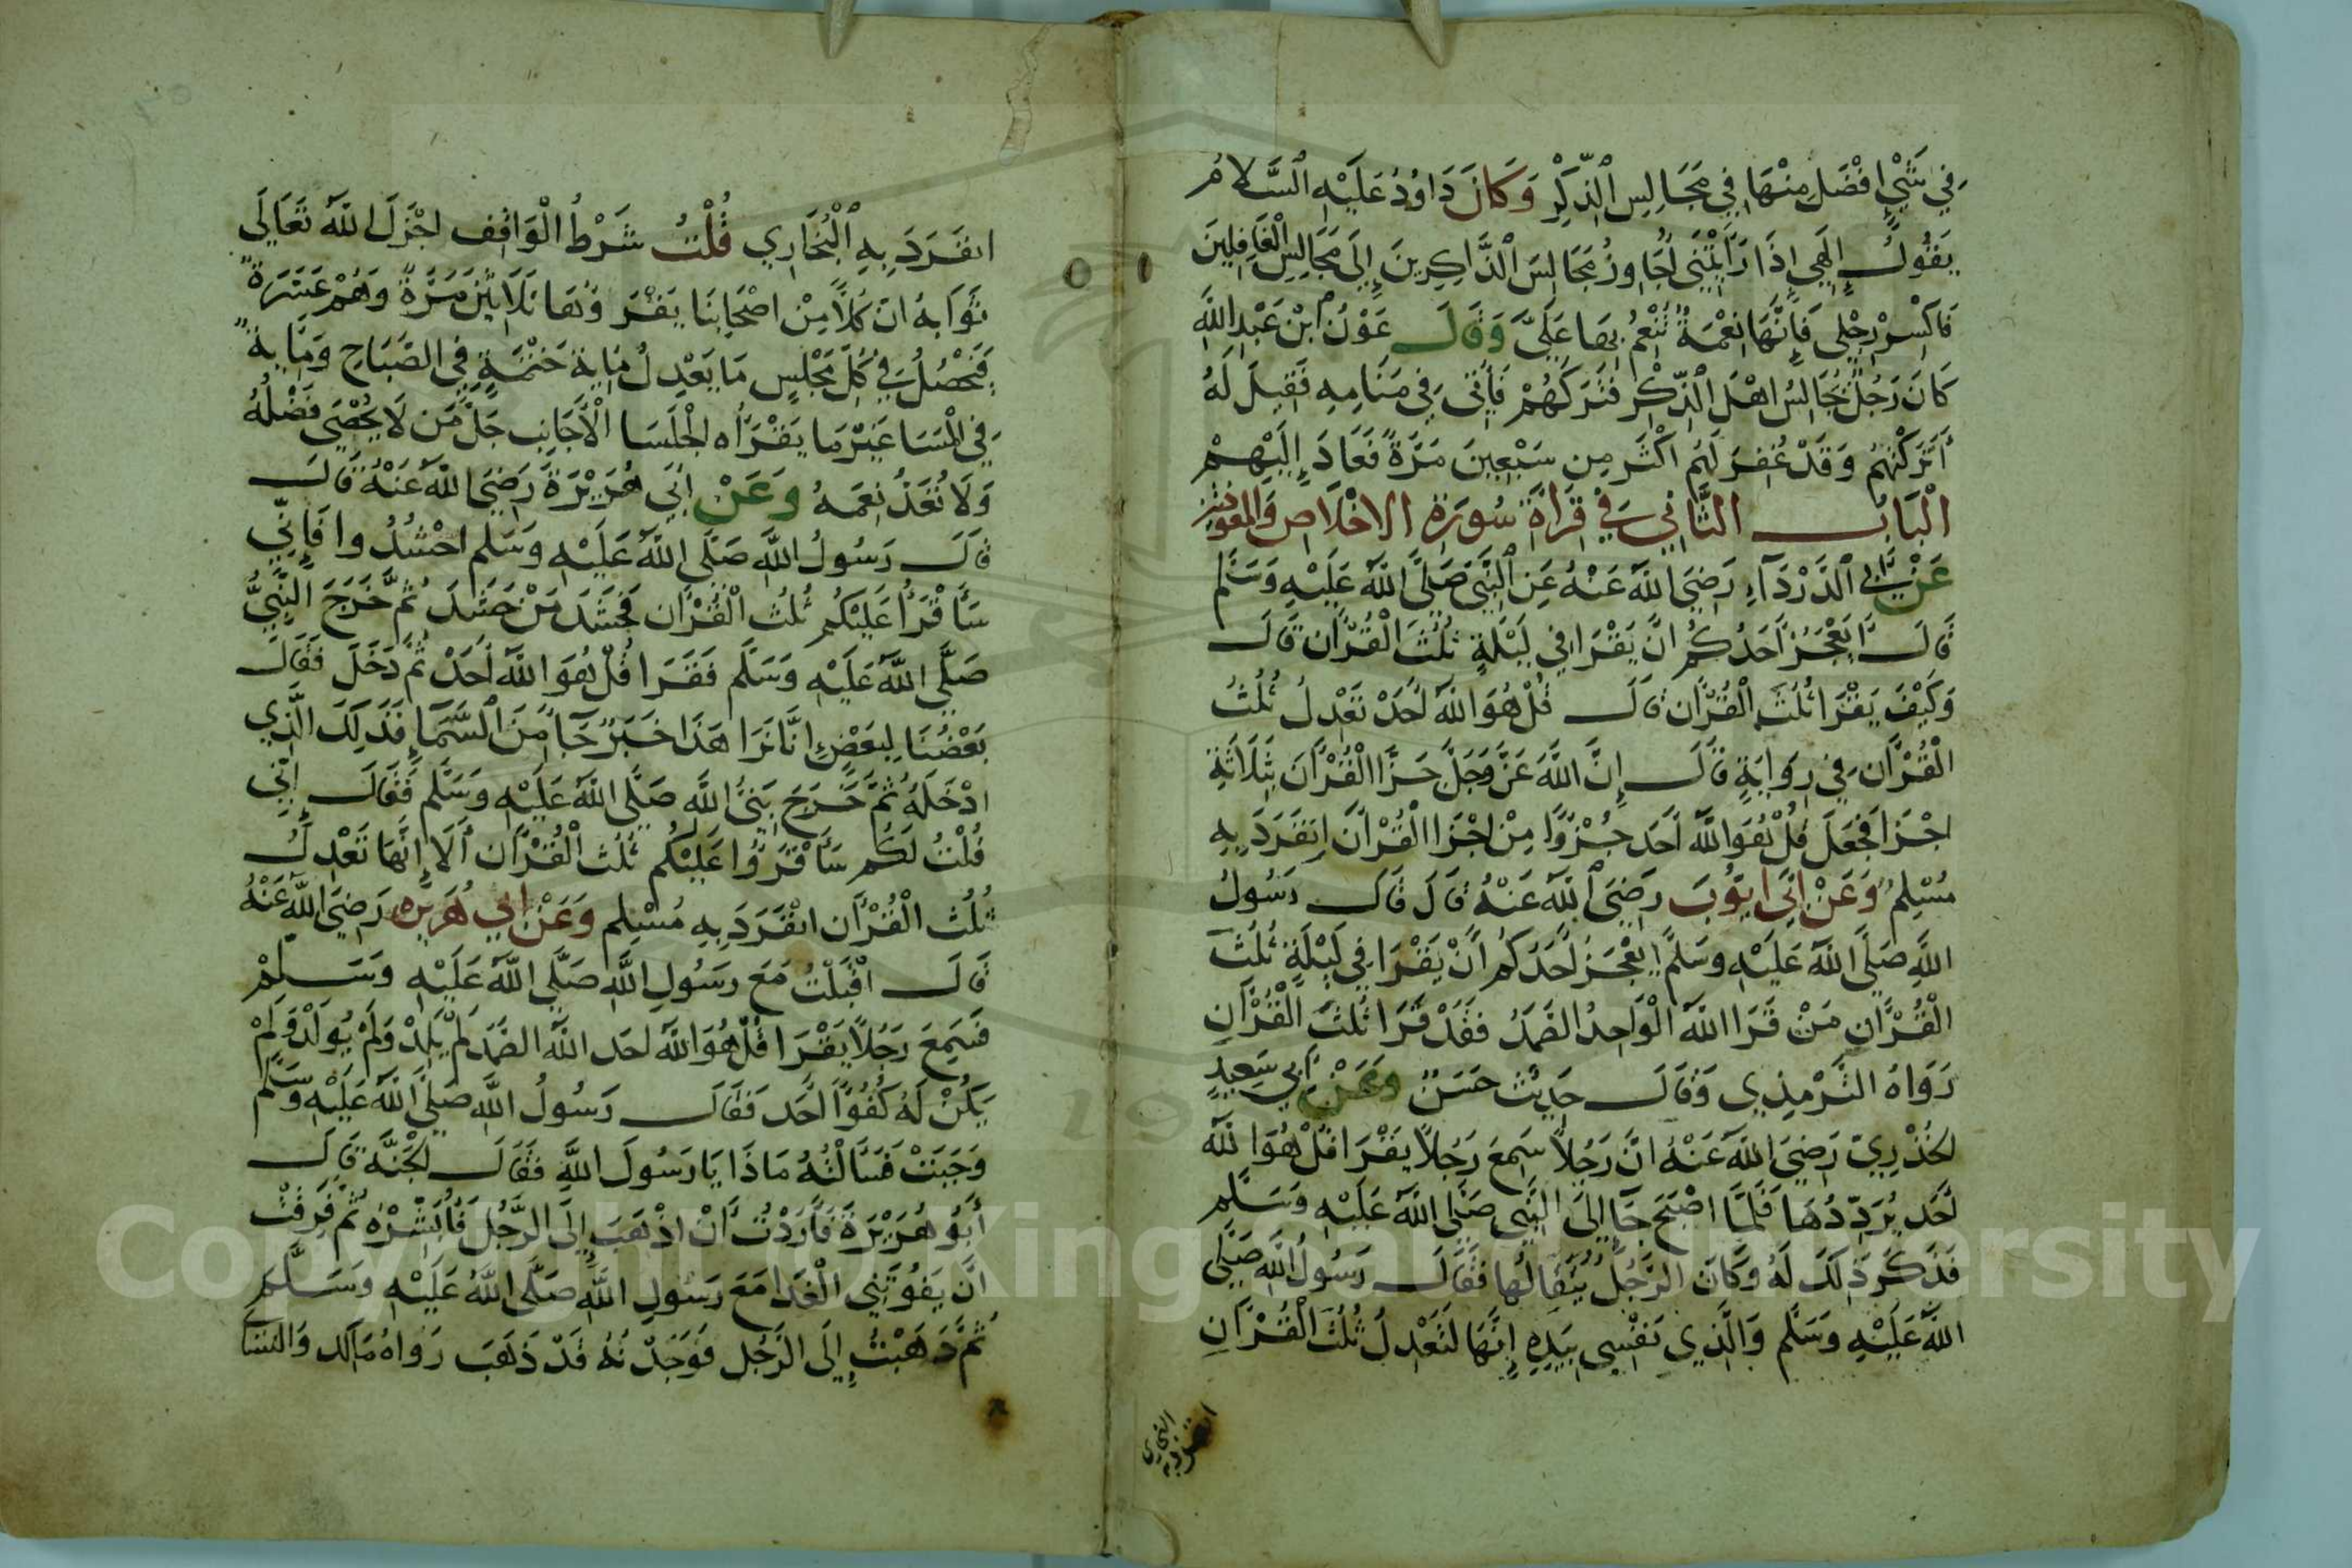 في شَيْءٍ افْضَل مِنْهَا فِي مَجَالِسِ الذِّكْرِ وَكَانَ دَاوُدُ عَلَيْهِ السَّلَامُ
يَقُولُ إِلَهِي إِذَا رَأَيْتَنِي أُجَاوِزُ مَجَالِسَ الذَّاكِرِينَ إِلَى مَجَالِسِ الْغَافِلِينَ
فَاكْسِرْ رِجْلِي فَإِنَّهَا نِعْمَةٌ تُنْعِمُ بِهَا عَلَيَّ وَقَالَ عَوْنُ ابْنُ عَبْدِ اللَّهِ
كَانَ رَجُلٌ يُجَالِسُ اهْلَ الذِّكْرِ فَتَرَكَهُمْ فَأُتِيَ فِي مَنَامِهِ فَقِيلَ لَهُ
أَتَرَكْتَهُمْ وَقَدْ غُفِرَ لَهُم اكْثَر مِن سَبْعِينَ مَرَّةً فَعَادَ إِلَيْهِمْ
الْبَابُ الثَّانِي فِي قِرَاةِ سُورَةِ الاخْلَاصِ وَالمعوذتين
عَنْ أَبِي الدَّرْدَآءِ رَضِيَ اللَّهُ عَنْهُ عَنِ النَّبِيِّ صَلَّى اللَّهُ عَلَيْهِ وَسَلَّم
قَالَ أَيَعْجَزُ أَحَدُكُم انْ يَقْرَا فِي لَيْلَةٍ ثُلُثَ الْقُرْآنِ قَالَ
وَكَيْفَ يَقْرَا ثُلُثَ الْقُرْآنِ قَالَ قُلْ هُوَ اللَّهُ أَحَدْ تَعْدِلُ ثُلُثَ
الْقُرْآنِ فِي رِوَايَةٍ قَالَ إِنَّ اللَّهَ عَزَّ وَجَلَّ جَزَّا الْقُرْآنَ بِثَلَاثَةِ
اجْزَا فَجَعَلَ قُلْ هُوَ اللَّهُ أَحَد جُزْوًا مِنْ اجْزَا الْقُرْآنَ انْفَرَدَ بِهِ
مُسْلِمٌ وَعَنْ ابِي ايُّوبَ رَضِيَ اللَّهُ عَنْهُ قَالَ قَالَ رَسُولُ
اللَّهِ صَلَّى اللَّهُ عَلَيْهِ وَسَلَّم أيَعْجَزُ أَحَدُكُم أَنْ يَقْرَا فِي لَيْلَةٍ ثُلُثَ
الْقُرْآنِ مَنْ قَرَا اللَّهُ الْوَاحِدُ الصَّمَدُ فَقَدْ قَرَا ثُلُثَ الْقُرْآنِ
رَوَاهُ التِّرْمِذِي وَقَالَ حَدِيثٌ حَسَنٌ وَعَنْ أَبِي سَعِيدٍ
الخُدْرِيّ رَضِيَ اللَّهُ عَنْهُ انَّ رَجُلاً سَمِعَ رَجُلاً يَقْرَا قُلْ هُوَ اللَّهُ
أَحَد يُرَدِّدُهَا فَلَمَّا اصْبَحَ جَا إِلَى النَّبِي صَلَّى اللَّهُ عَلَيْهِ وَسَلَّم
فَذَكَرَ ذَلِكَ لَهُ وَكَانَ الرَّجُلُ يَتَقَالُّهَا فَقَالَ رَسُولُ اللَّهِ صَلَّى
اللَّهُ عَلَيْهِ وَسَلَّم وَالَّذِي نَفْسِي بِيَدِهِ إِنَّهَا لَتَعْدِلُ ثُلُثَ الْقُرْآنِ
انفرد به
البخاري
انفَرَدَ بِهِ الْبُخَارِي قُلْتُ شَرْطُ الْوَاقِفِ اجْزَلَ اللَّهُ تَعَالَى
ثَوَابَهُ انَّ كُلًّا مِنْ اصْحَابِنَا يَقْرَوُهَا ثَلَاثِينَ مَرَّةً وَهُمْ عَشَرَةٌ
فَيَحْصُلُ فِي كُلِّ مَجْلِسٍ مَا يَعْدِلُ مِايَةَ خَتْمَةٍ فِي الصَّبَاحِ وَمِايَةً
فِي الْمَسَا غَيْرَ مَا يَقْرَأُه الجُلَسَا الأَجَانِب جَلَّ مَن لَا يُحْصَى فَضْلُهُ
وَلَا تُعَدُّ نِعَمهُ وَعَنْ أَبِي هُرَيْرَةَ رَضِيَ اللَّهُ عَنْهُ قَالَ
قَالَ رَسُولُ اللَّهِ صَلَّى اللَّهُ عَلَيْهِ وَسَلم احْشُدُوا فَإِنِّي
سَأَقْرَأُ عَلَيْكُم ثُلُثَ الْقُرْآنِ فَحَشَدَ مَنْ حَشَدَ ثُمَّ خَرَجَ النَّبِيُّ
صَلَّى اللَّهُ عَلَيْهِ وَسَلَّم فَقَرَا قُلْ هُوَ اللَّهُ أَحَدْ ثُمَّ دَخَلَ فَقَالَ
بَعْضُنَا لِبَعْضٍ انَّا نَرَا هَذَا خَبَرٌ جَآ مِنَ السَّمَآ فَذَلِكَ الَّذِي
ادْخَلَهُ ثُمَّ خَرَجَ نَبِيُّ اللَّهِ صَلَّى اللَّهُ عَلَيْهِ وَسَلَّم فَقَالَ إِنِّي
قُلْتُ لَكُم سَأَقْرَؤُا عَلَيْكُم ثُلُثَ الْقُرْآنِ أَلَا إِنَّهَا تَعْدِلُ
ثُلُثَ الْقُرْآنِ انْفَرَدَ بِهِ مُسْلِم وَعَنْ ابِي هُرَيْرَه رَضِيَ اللَّهُ عَنْهُ
قَالَ اقْبَلْتُ مَعَ رَسُولِ اللَّهِ صَلَّى اللَّهُ عَلَيْهِ وَسَلَّمْ
فَسَمِعَ رَجُلاً يَقْرَا قُلْ هُوَ اللَّهُ احَد اللَّهُ الصَّمَد لَمْ يَلِدْ وَلَمْ يُولَدْ وَلَمْ
يَكُنْ لَهُ كُفُوًا أَحَد فَقَالَ رَسُولُ اللَّهِ صَلَّى اللَّهُ عَلَيْهِ وَسَلَّم
وَجَبَتْ فَسَأَلْتُهُ مَاذَا يَا رَسُولَ اللَّهِ فَقَالَ الجَنَّةُ قَالَ
أَبُو هُرَيْرَةَ فَأَرَدْتُ أَنْ اذْهَبَ إِلَى الرَّجُلِ فَأُبَشِّرُهُ ثُمَّ فَرِقْتُ
انْ يَفُوتَنِي الْغَدَا مَعَ رَسُولِ اللَّهِ صَلَّى اللَّهُ عَلَيْهِ وَسَلَّم
ثُمَّ ذَهَبْتُ إِلَى الرَّجُلِ فَوَجَدْتُهُ قَدْ ذَهَبَ رَوَاهُ مَالِك وَالنَّسَا
Copyright © King Saud University